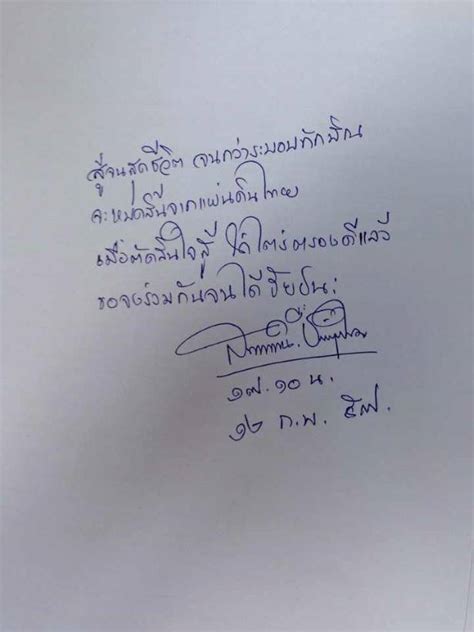 สู้จนสุดชีวิต จนกว่าระบอบทักษิณ
จะหมดสิ้นจากแผ่นดินไทย
เมื่อตัดสินใจสู้ ได้ไตร่ตรองดีแล้ว
ขอจงร่วมกันจนได้ชัยชนะ
๑๗.๑๐ น.
๑๒ ก.พ. ๕๗.